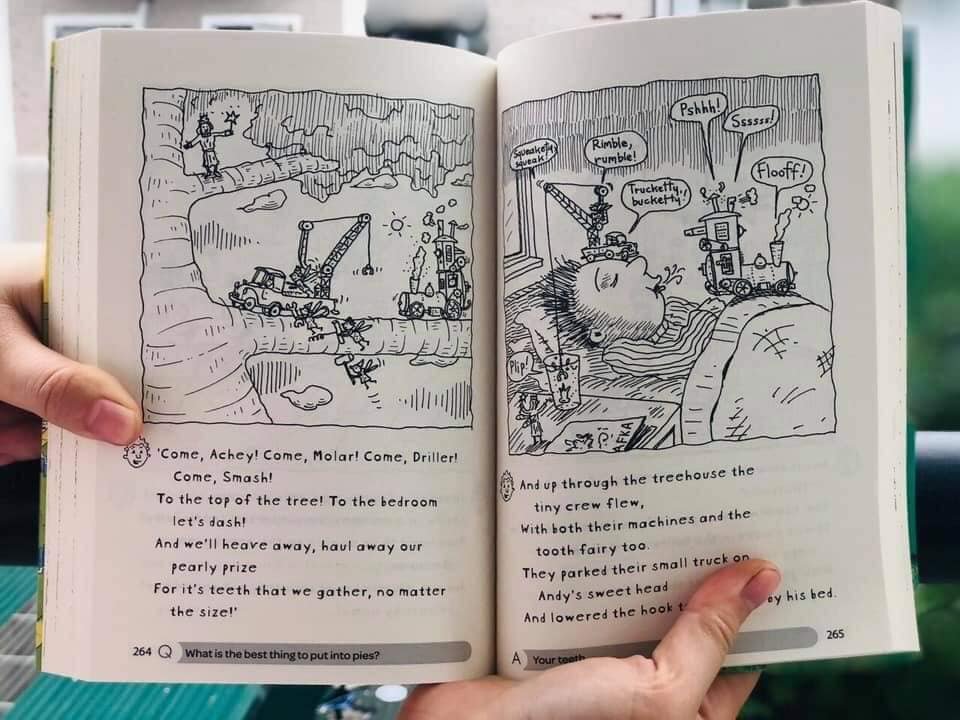 'Come, Achey! Come, Molar! Come, Driller!
Come, Smash!
To the top of the tree! To the bedroom
let's dash!
And we'll heave away, haul away our
pearly prize
For it's teeth that we gather, no matter
the size!'
264 Q What is the best thing to put into pies?
Squeakety squeak!
Rimble,
rumble!
Trucketty,
bucketty!
Pshhh!
Ssssss!
Flooff!
Plip!
And up through the treehouse the
tiny crew flew,
With both their machines and the
tooth fairy too.
They parked their small truck on
Andy's sweet head
And lowered the hook
by his bed.
A Your teeth
265